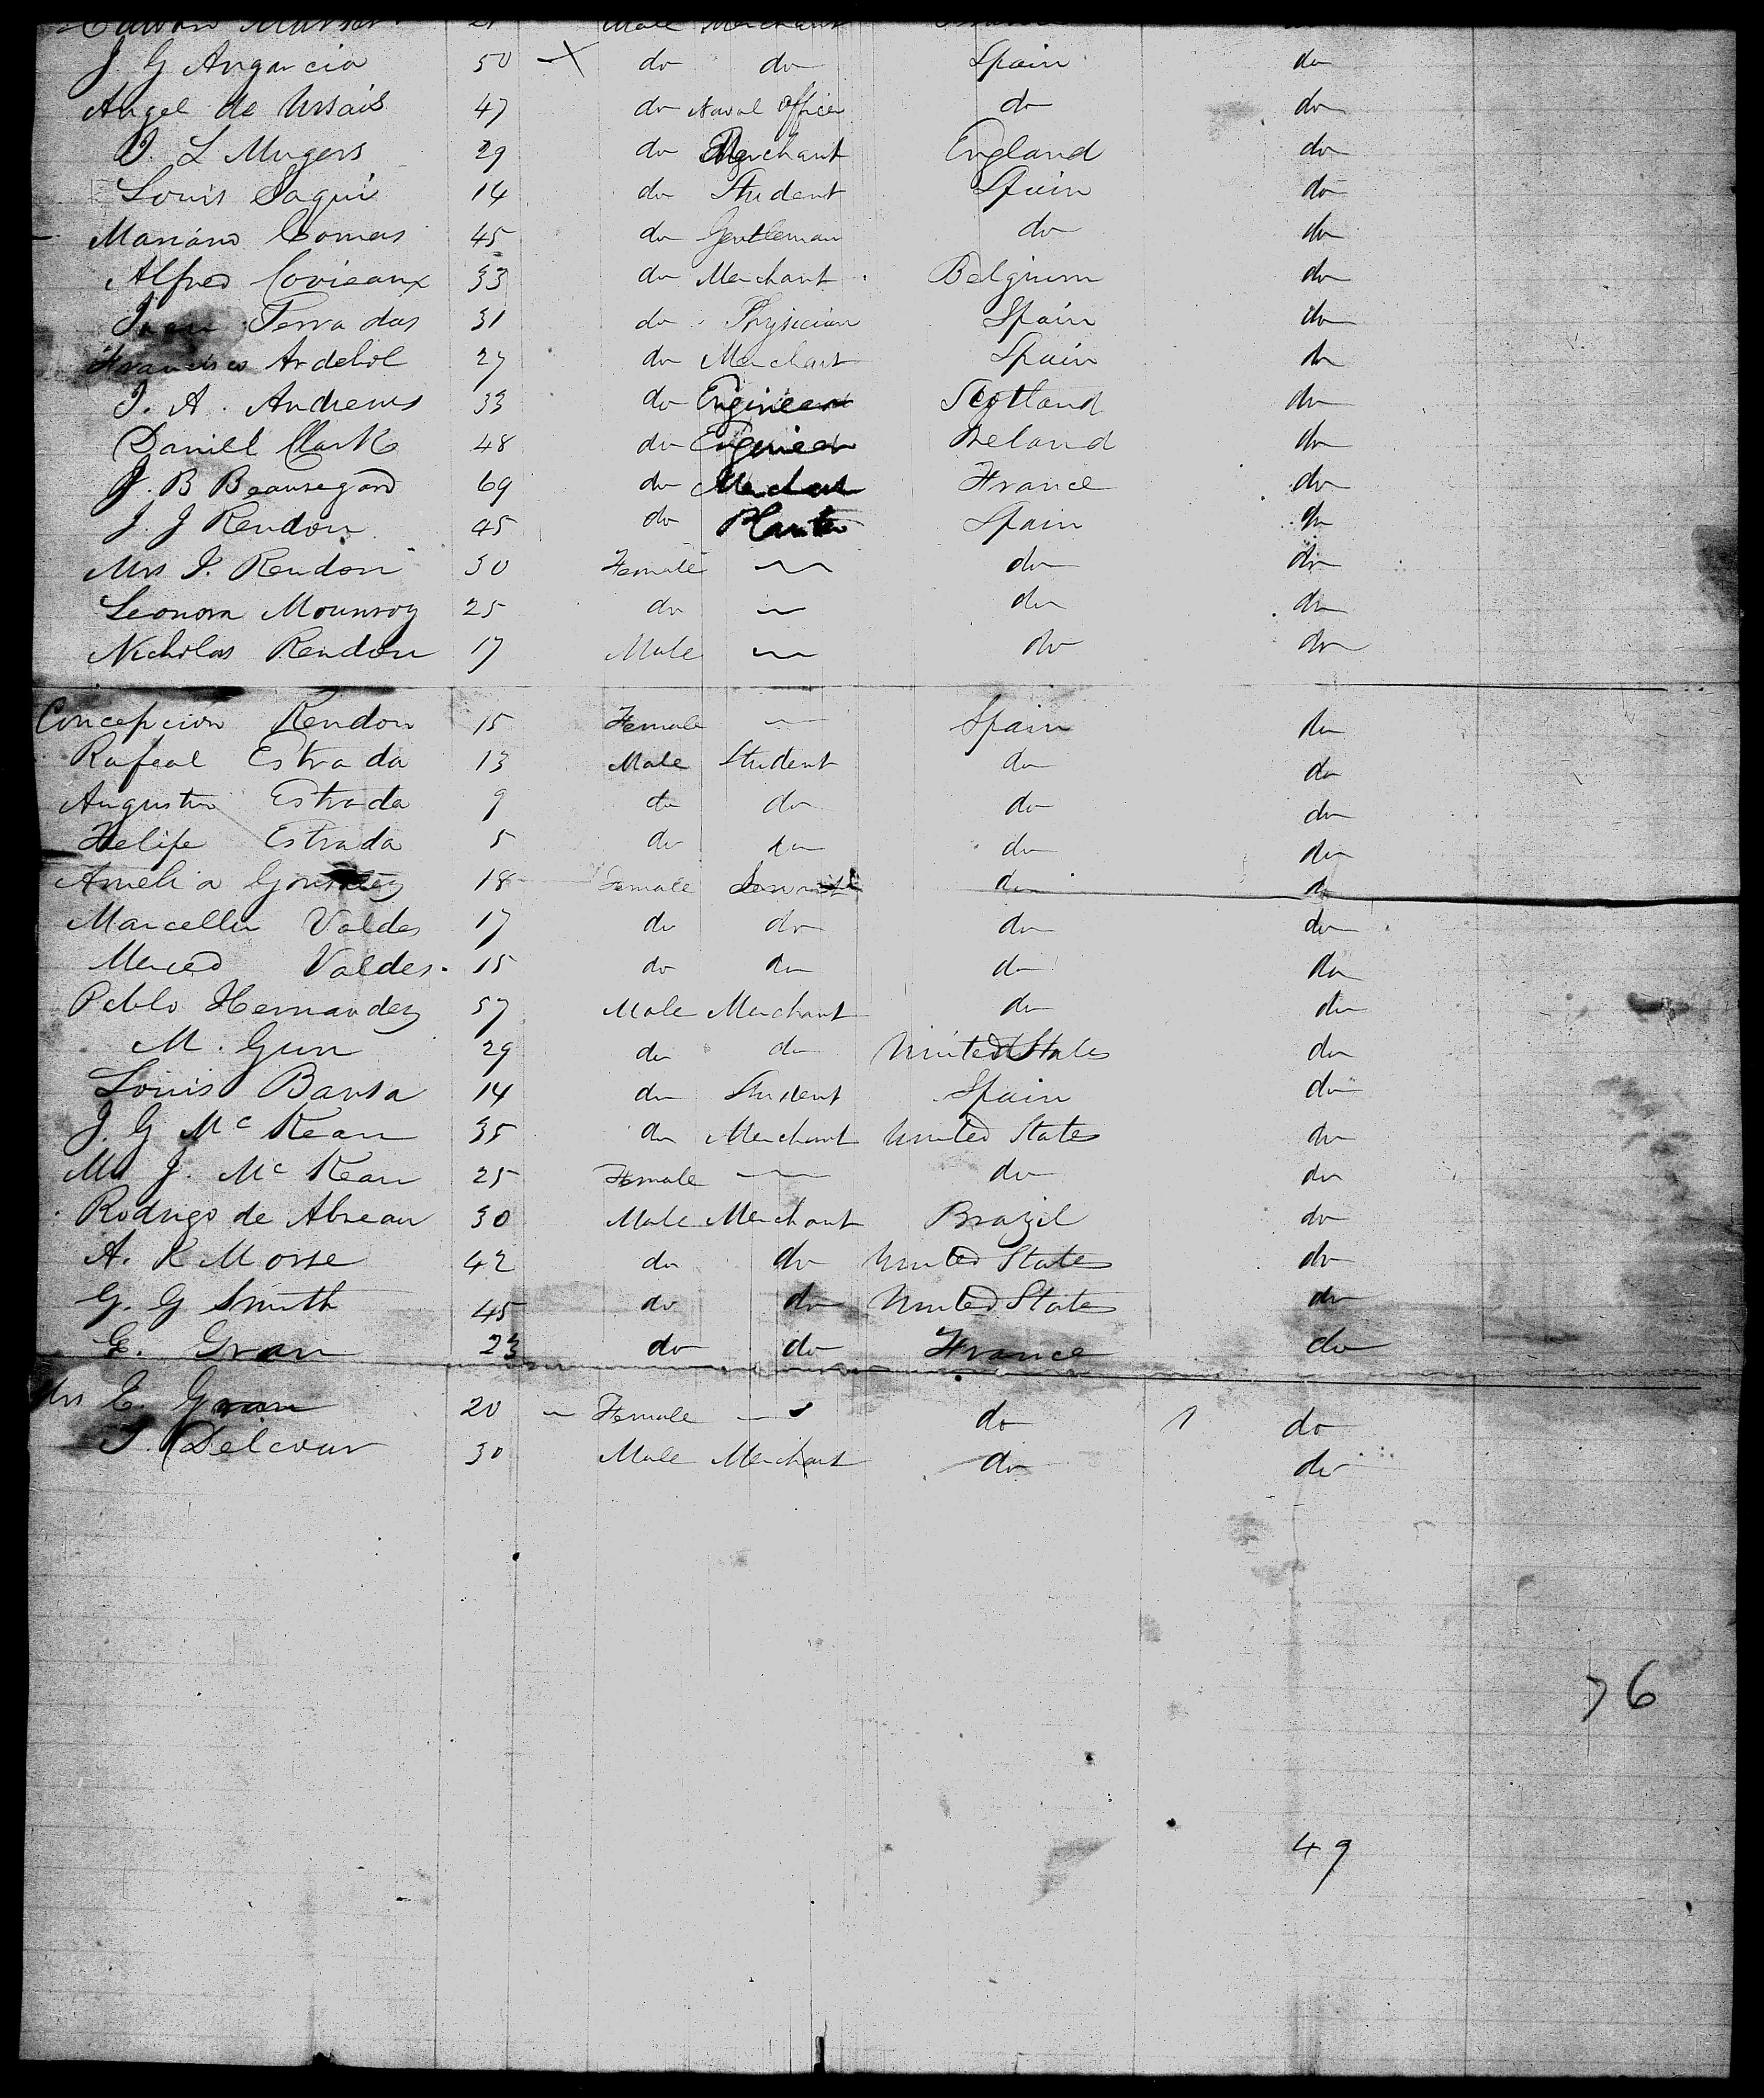 J G Angarcia 50 X do do Spain do
Angel de Ursais 47 do Naval Officer do do
J. L Mugers 29 do Merchant England do
Louis Saqui 14 do Student Spain do
Mariano Comas 45 do Gentleman do do
Alfred Covieaux 33 do Merchant Belgium do
Juan Terradas 31 do Physician Spain do
Francisco Ardebol 27 do Merchant Spain do
J. A. Andrews 33 do Engineer Scotland do
Daniel Clark 48 do Engineer Ireland do
J. B Beauregard 69 do Merchant France do
J. J Rendon 45 do Planter Spain do
Mrs J. Rendon 30 Female — do do
Leonora Mounroy 25 do — do do
Nicholas Rendon 17 Male — do do
Concepcion Rendon 15 Female — Spain do
Rafeal Estrada 13 Male Student do do
Augustin Estrada 9 do do do do
Felipe Estrada 5 do do do do
Amelia Gonzalez 18 Female Servant do do
Marcellu Valdes 17 do do do do
Merced Valdes 15 do do do do
Pablo Hernandez 57 Male Merchant do do
M. Gun 29 do do United States do
Louis Bausa 14 do Student Spain do
J. G McKean 35 do Merchant United States do
Mrs J. McKean 25 Female — do do
Rodrigo de Abreau 30 Male Merchant Brazil do
A. K Morse 42 do do United States do
G. G Smith 45 do do United States do
E. Gran 23 do do France do
Mrs E. Gran 20 — Female — do 1 do
J. Delcour 30 Male Merchant do do
76
49